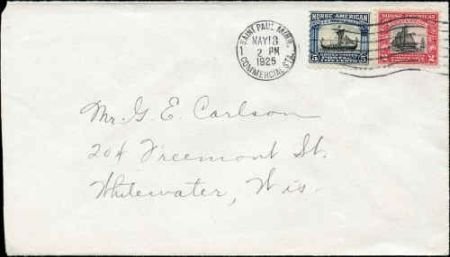 SAINT PAUL, MINN.
1
MAY 18
2 PM
1925
COMMERCIAL STA.
NORSE-AMERICAN
5 5
NORSE-AMERICAN
2 2
Mr. G. E. Carlson
204 Freemont St.
Whitewater, Wis.